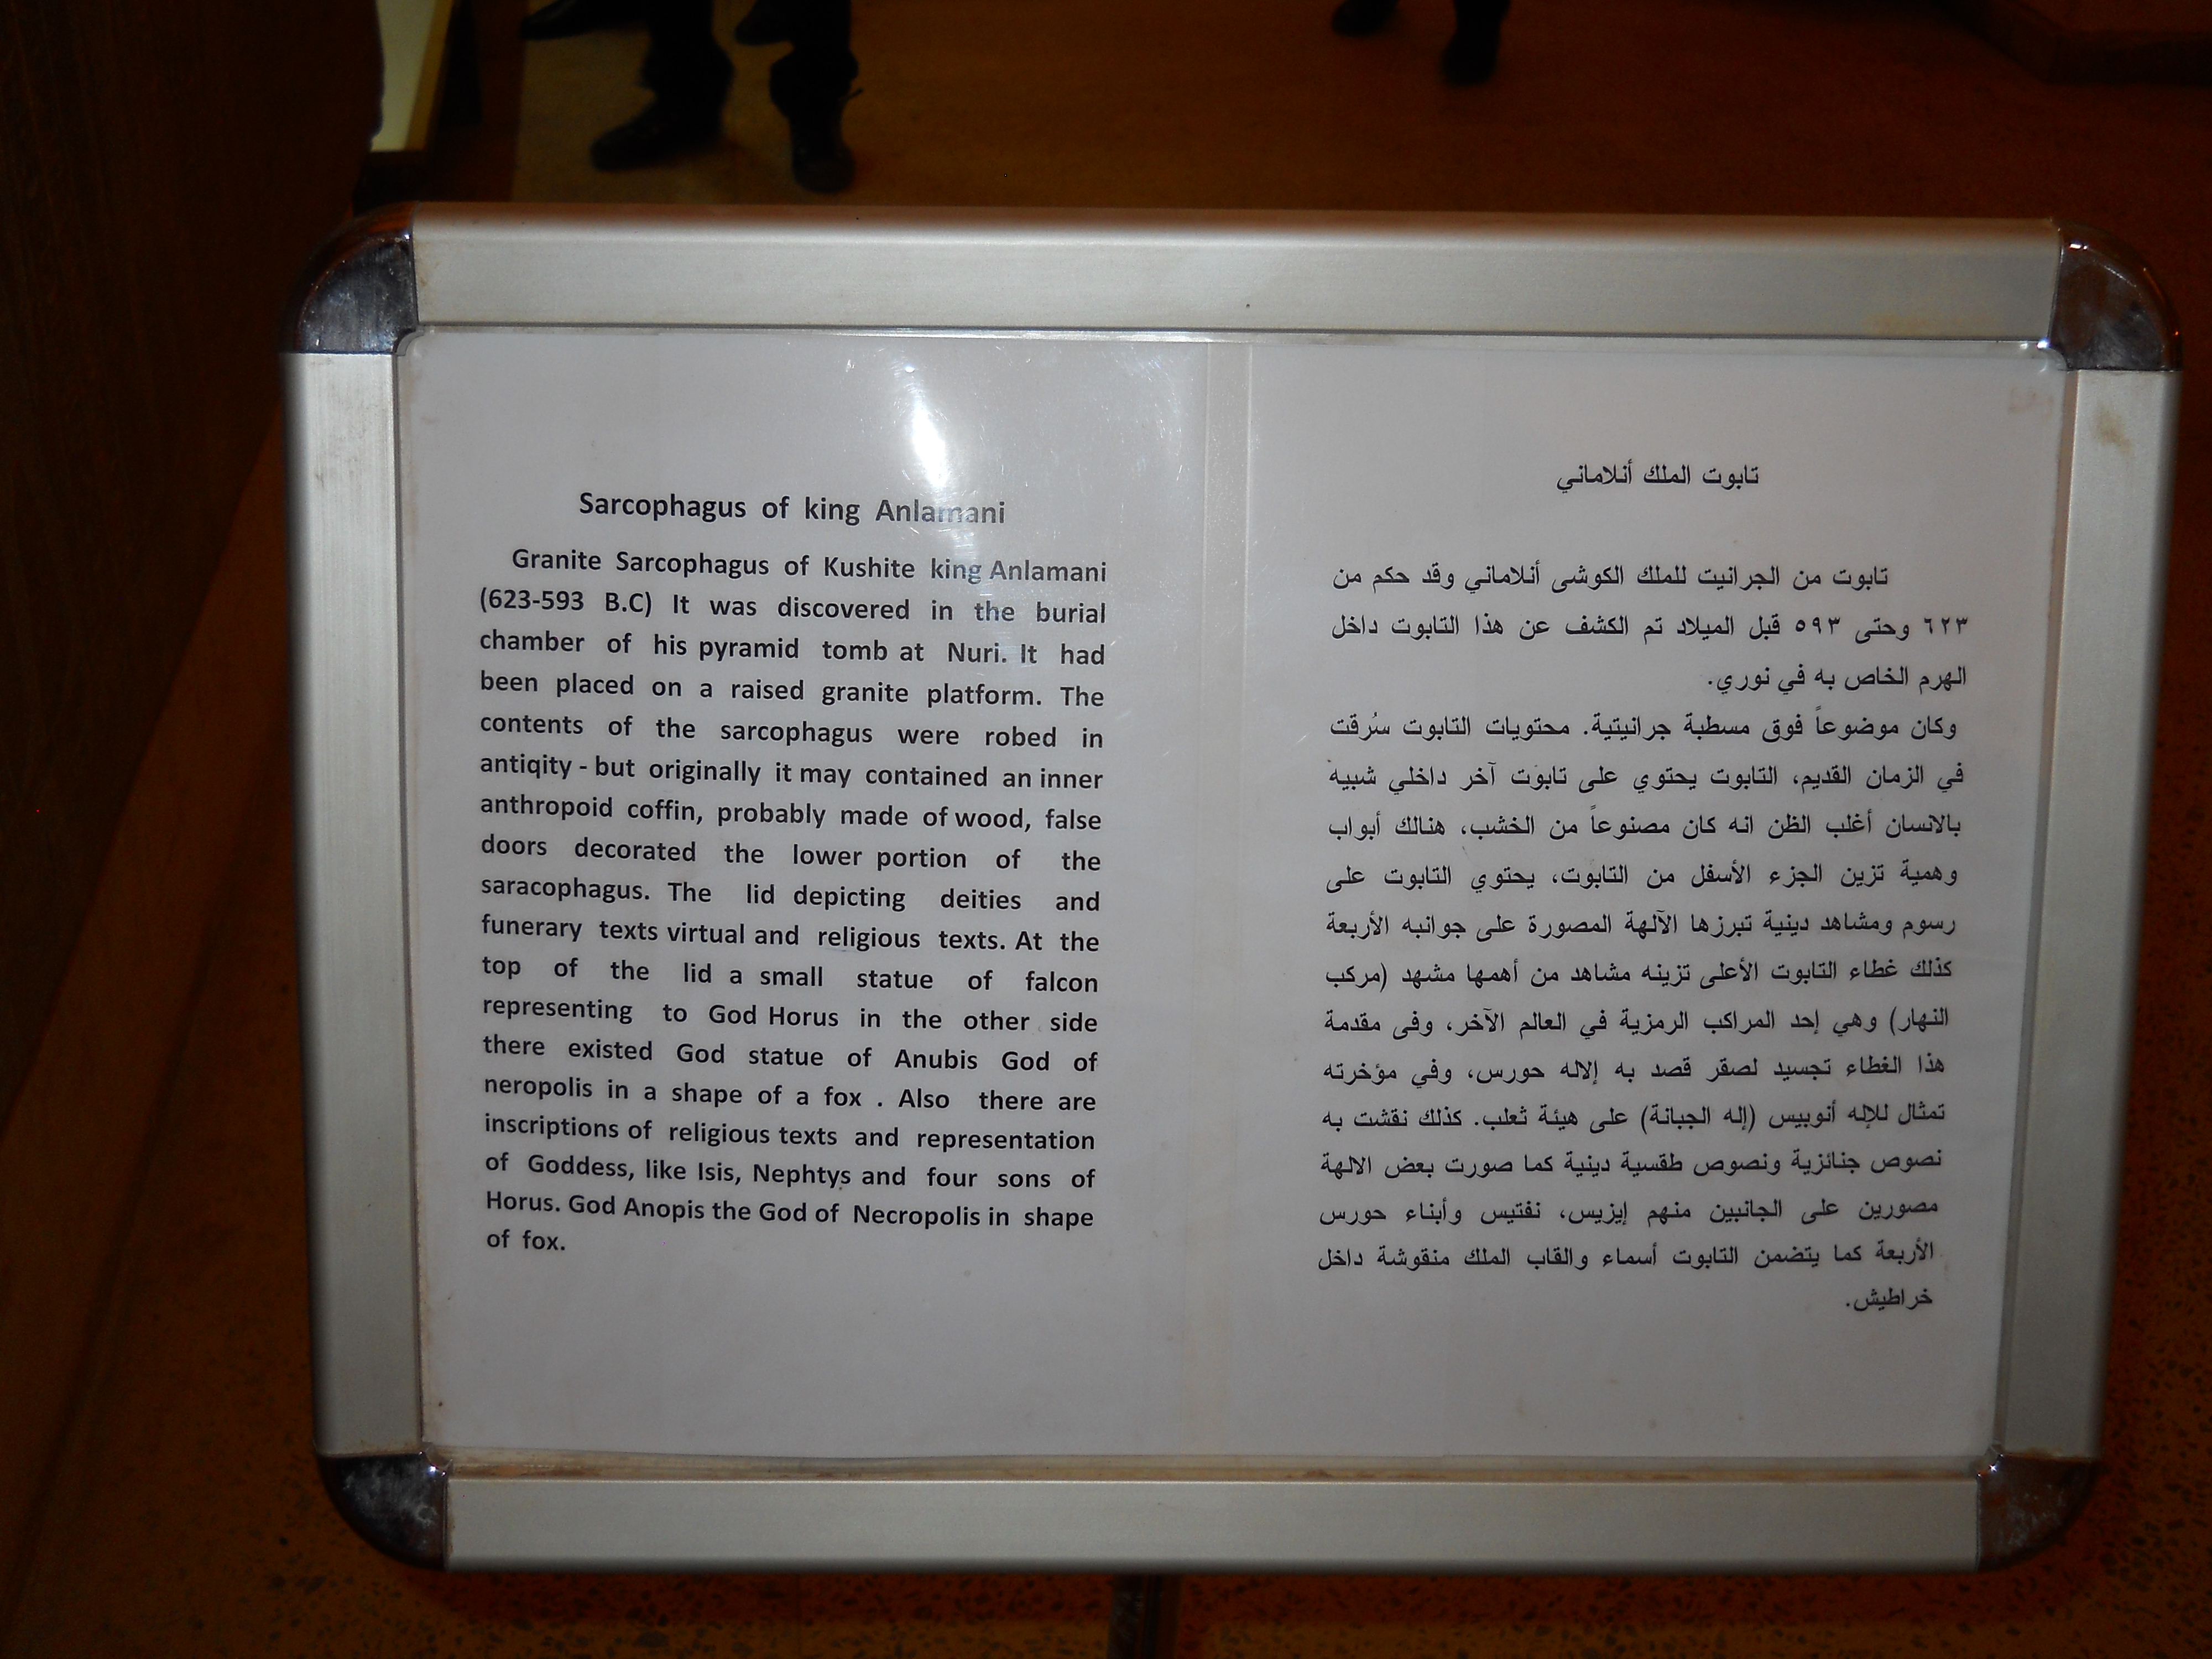 Sarcophagus of king Anlamani
Granite Sarcophagus of Kushite king Anlamani
(623-593 B.C) It was discovered in the burial
chamber of his pyramid tomb at Nuri. It had
been placed on a raised granite platform. The
contents of the sarcophagus were robed in
antiqity - but originally it may contained an inner
anthropoid coffin, probably made of wood, false
doors decorated the lower portion of the
saracophagus. The lid depicting deities and
funerary texts virtual and religious texts. At the
top of the lid a small statue of falcon
representing to God Horus in the other side
there existed God statue of Anubis God of
neropolis in a shape of a fox . Also there are
inscriptions of religious texts and representation
of Goddess, like Isis, Nephtys and four sons of
Horus. God Anopis the God of Necropolis in shape
of fox.
تابوت الملك أنلاماني
تابوت من الجرانيت للملك الكوشى أنلاماني وقد حكم من
٦٢٣ وحتى ٥٩٣ قبل الميلاد تم الكشف عن هذا التابوت داخل
الهرم الخاص به في نوري.
وكان موضوعاً فوق مسطبة جرانيتية. محتويات التابوت سُرقت
في الزمان القديم، التابوت يحتوي على تابوت آخر داخلي شبيه
بالانسان أغلب الظن انه كان مصنوعاً من الخشب، هنالك أبواب
وهمية تزين الجزء الأسفل من التابوت، يحتوي التابوت على
رسوم ومشاهد دينية تبرزها الآلهة المصورة على جوانبه الأربعة
كذلك غطاء التابوت الأعلى تزينه مشاهد من أهمها مشهد (مركب
النهار) وهي إحد المراكب الرمزية في العالم الآخر، وفى مقدمة
هذا الغطاء تجسيد لصقر قصد به إلاله حورس، وفي مؤخرته
تمثال للإله أنوبيس (إله الجبانة) على هيئة ثعلب. كذلك نقشت به
نصوص جنائزية ونصوص طقسية دينية كما صورت بعض الالهة
مصورين على الجانبين منهم إيزيس، نفتيس وأبناء حورس
الأربعة كما يتضمن التابوت أسماء والقاب الملك منقوشة داخل
خراطيش.